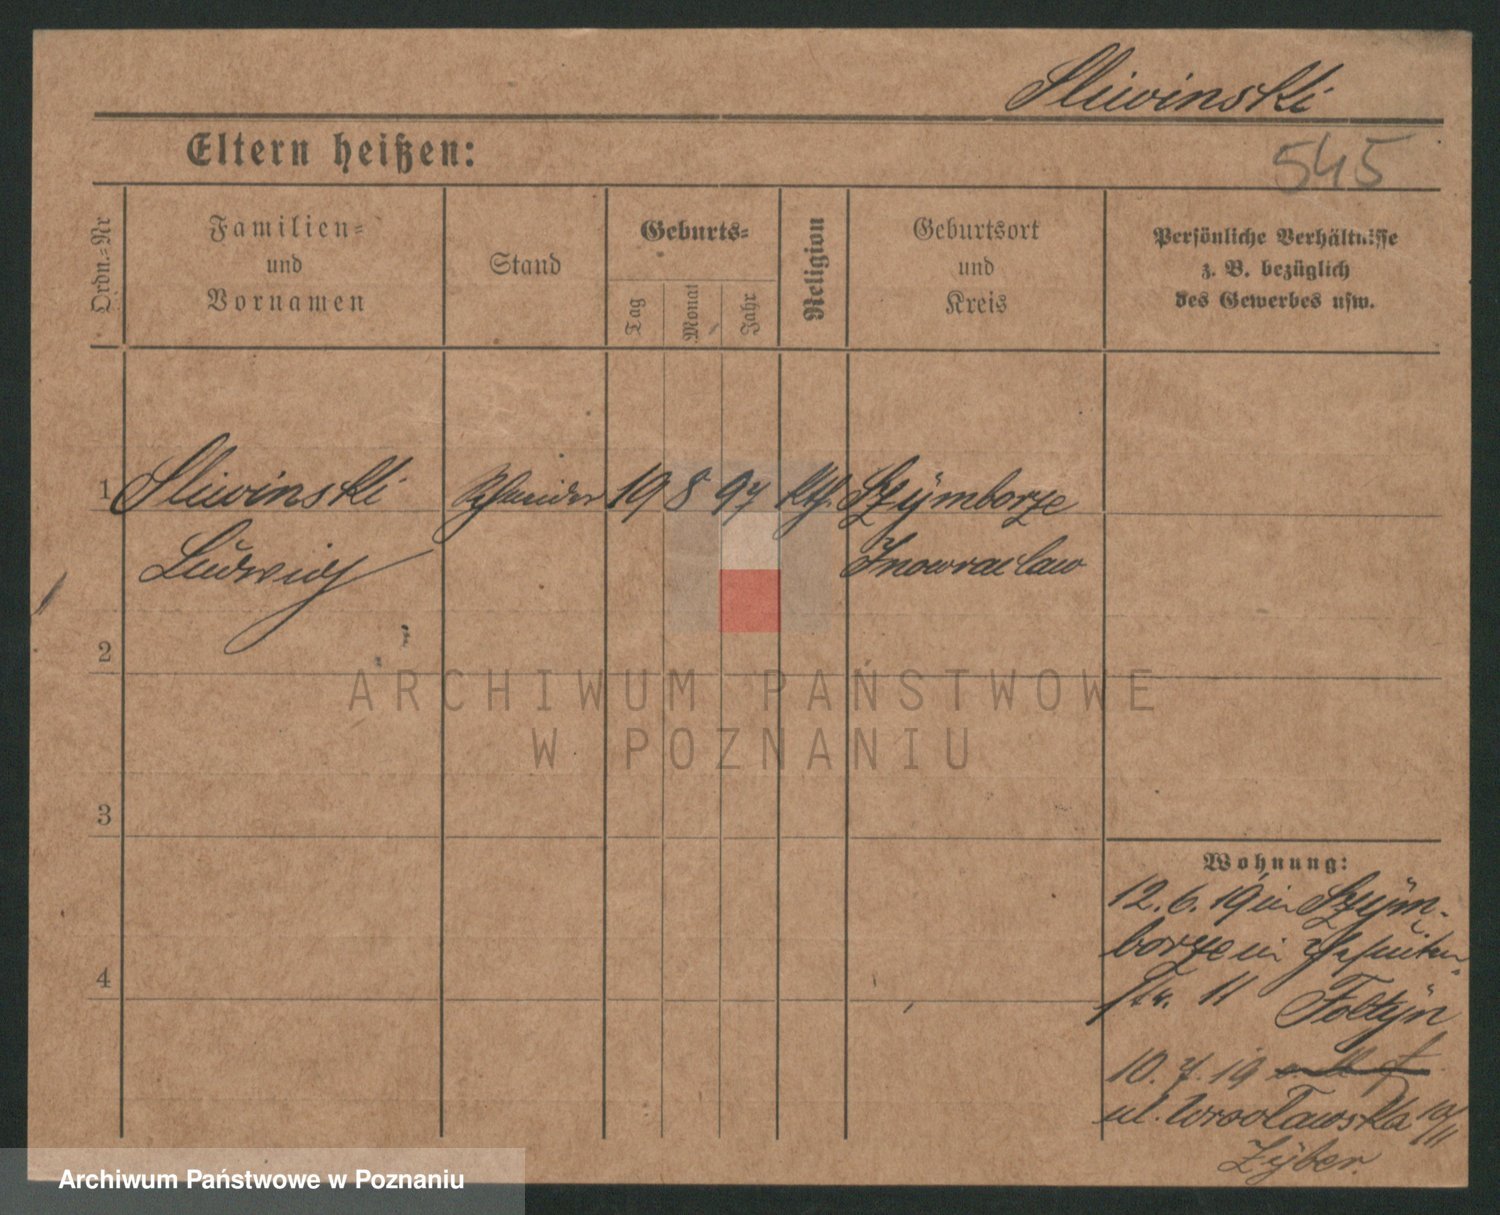 Sliwinski
Eltern heißen:
545
Ordn.-Nr
Familien-
und
Vornamen
Stand
Geburts-
Tag
Monat
Jahr
Religion
Geburtsort
und
Kreis
Persönliche Verhältnisse
z. B. bezüglich
des Gewerbes usw.
1 Sliwinski Schneider 19 8 97 kth. Szÿmborze
Ludwig Inowraclaw
2
3
4
Wohnung:
12. 6. 19 in Szÿm-
borze in
str. 11 Foltÿn
10. 7. 19
ul. Wrocławska 10/11
Zÿber.
ARCHIWUM PAŃSTWOWE
W POZNANIU
Archiwum Państwowe w Poznaniu